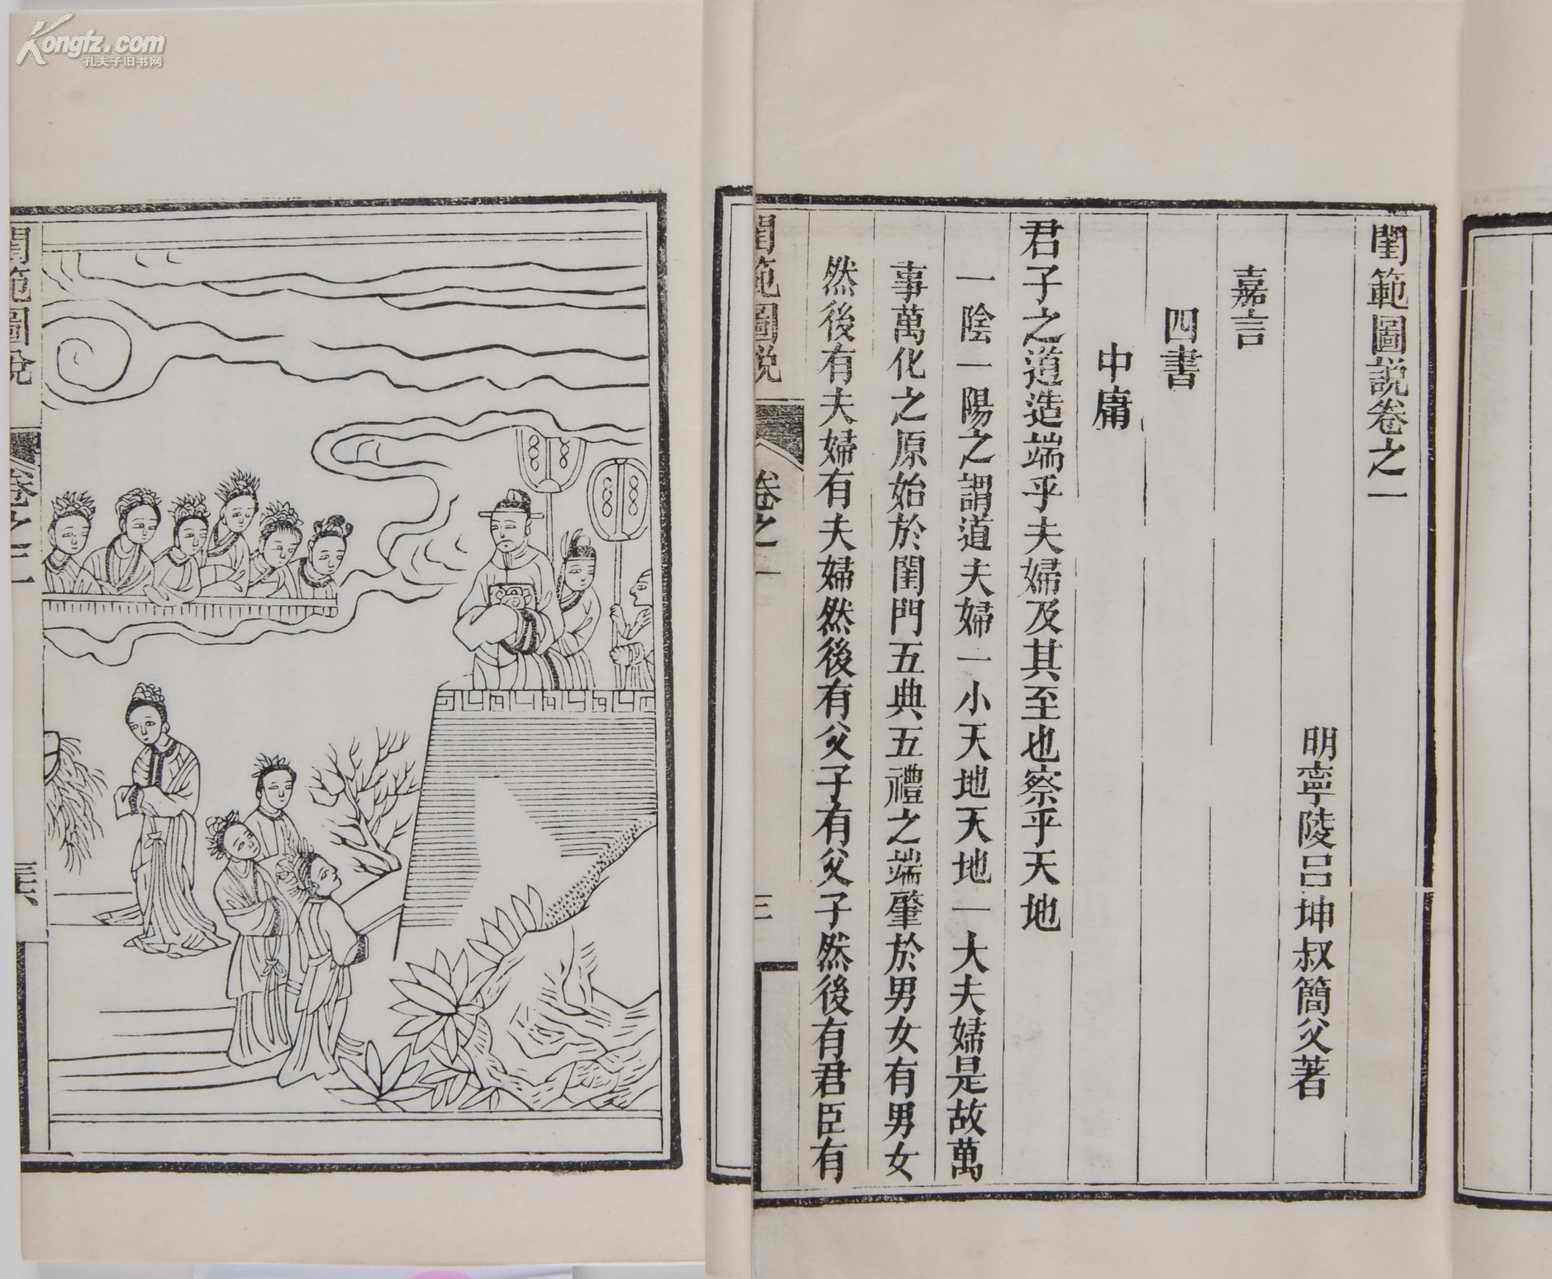 閨範圖說卷之一
明寧陵呂坤叔簡父著
嘉言
四書
中庸
君子之道造端乎夫婦及其至也察乎天地
一陰一陽之謂道夫婦一小天地天地一大夫婦是故萬
事萬化之原始於閨門五典五禮之端肇於男女有男女
然後有夫婦有夫婦然後有父子有父子然後有君臣有
閨範圖說
卷之一
三
閨範圖說
卷之二
Kongfz.com
孔夫子旧书网